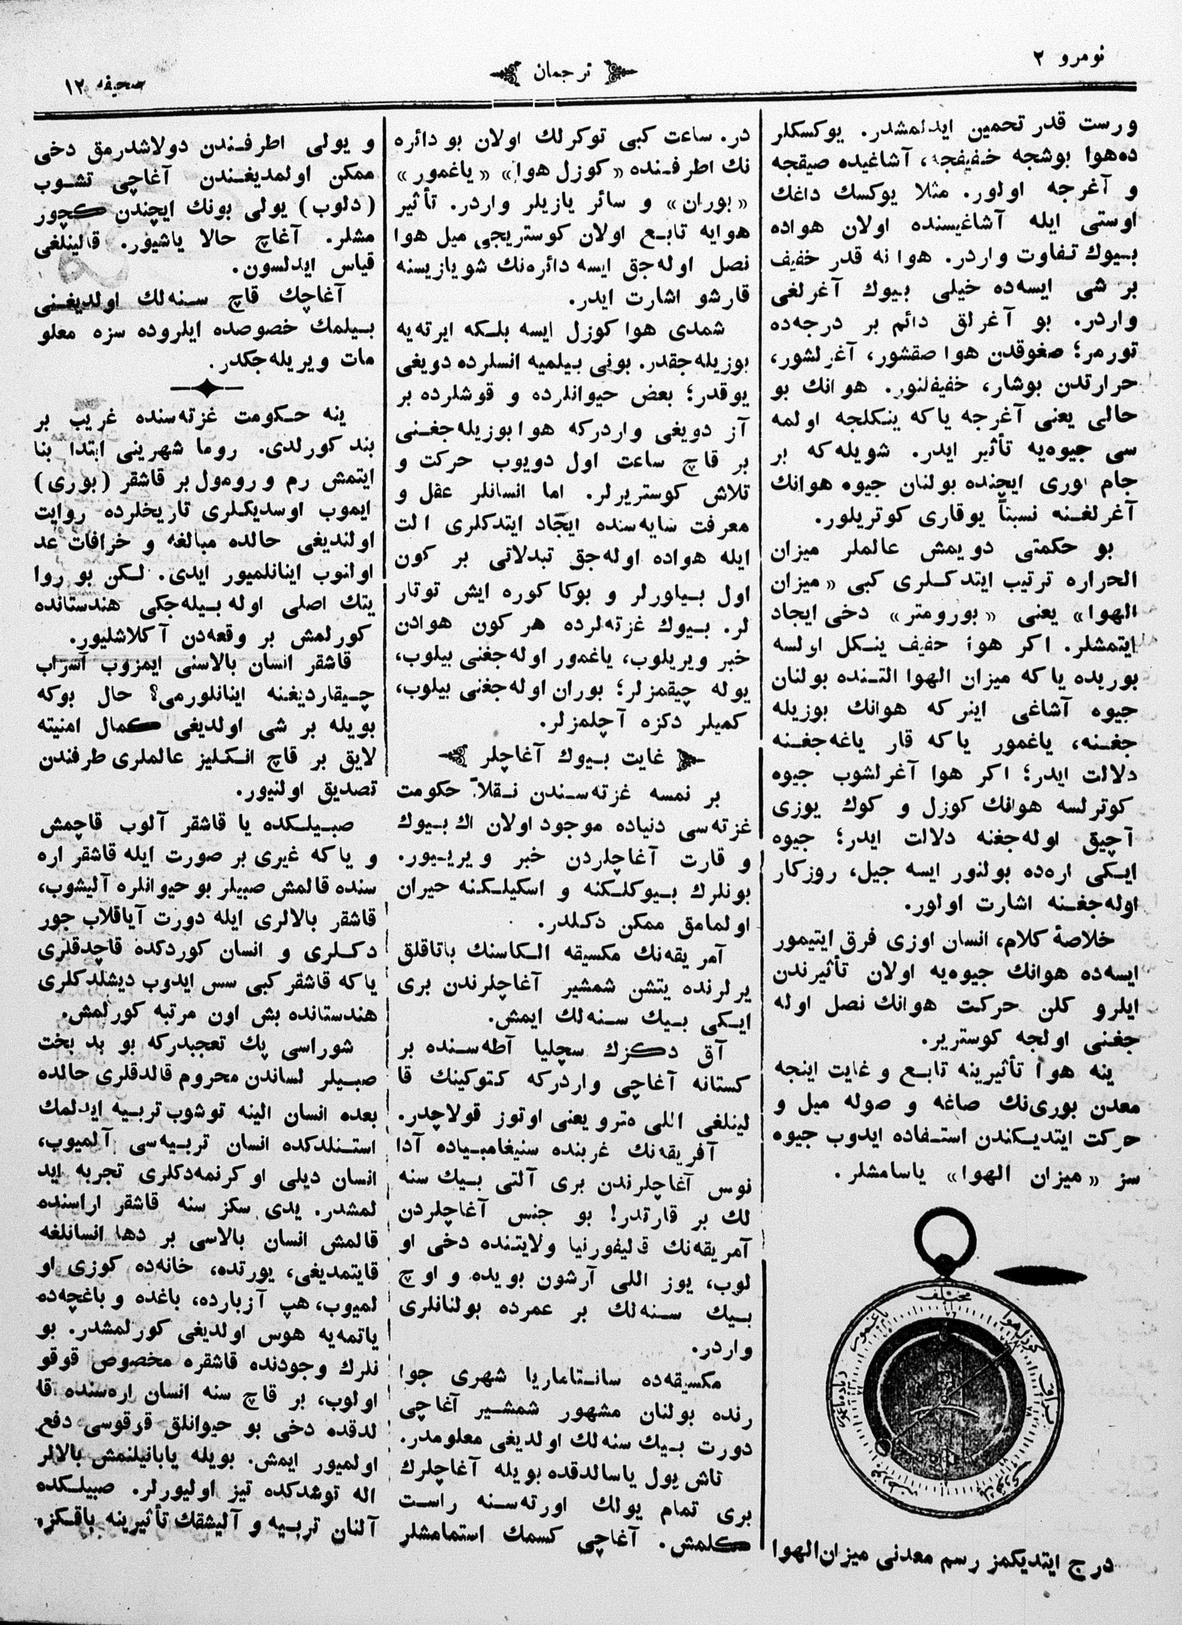 نومرو ٢
ترجمان
صحیفه ١٢
ورست قدر تحمین ایدلمشدر. یوكسكلر
ده‌هوا بوشجه خفیفجه، آشاغیده صیقجه
و آغرجه اولور. مثلا یوكسك داغك
اوستی ایله آشاغیسنده اولان هواده
بیوك تفاوت واردر. هوا نه قدر خفیف
بر شی ایسه‌ده خیلی بیوك آغرلغی
واردر. بو آغرلق دائم بر درجه‌ده
تورمز؛ صغوقدن هوا صقشور، آغرلشور،
حرارتدن بوشار، خفیفلنور. هوانك بو
حالی یعنی آغرجه یاكه ینكلجه اولمه
سی جیوه‌یه تأثیر ایدر. شویله‌كه بر
جام بوری ایچنده بولنان جیوه هوانك
آغرلغنه نسبتاً یوقاری كوتریلور.
بو حكمتی دویمش عالملر میزان
الحراره ترتیب ایتدكلری كبی «میزان
الهوا» یعنی «بورومتر» دخی ایجاد
ایتمشلر. اكر هوا خفیف ینكل اولسه
بوریده یاكه میزان الهوا التنده بولنان
جیوه آشاغی اینركه هوانك بوزیله
جغنه، یاغمور یاكه قار یاغه‌جغنه
دلالت ایدر؛ اكر هوا آغرلشوب جیوه
كوترلسه هوانك كوزل و كوك یوزی
آچیق اوله‌جغنه دلالت ایدر؛ جیوه
ایكی اره‌ده بولنور ایسه جیل، روزكار
اوله‌جغنه اشارت اولور.
خلاصهٔ كلام، انسان اوزی فرق ایتیمور
ایسه‌ده هوانك جیوه‌یه اولان تأثیرندن
ایلرو كلن حركت هوانك نصل اوله
جغنی اولجه كوستریر.
ینه هوا تأثیرینه تابع و غایت اینجه
معدن بوری‌نك صاغه و صوله میل و
حركت ایتدیكندن استفاده ایدوب جیوه
سز «میزان الهوا» یاسامشلر.
مختلف
كوزل هوا
یاغمور
بوران
درج ایتدیكمز رسم معدنی میزان‌الهوا
در. ساعت كبی توكرلك اولان بو دائره
نك اطرفنده «كوزل هوا» «یاغمور»
«بوران» و سائر یازیلر واردر. تأثیر
هوایه تابع اولان كوستریجی میل هوا
نصل اوله‌جق ایسه دائره‌نك شو یازیسنه
قارشو اشارت ایدر.
شمدی هوا كوزل ایسه بلكه ایرته‌یه
بوزیله‌جقدر. بونی بیلمیه انسلرده دویغی
یوقدر؛ بعض حیوانلرده و قوشلرده بر
آز دویغی واردركه هوا بوزیله‌جغنی
بر قاچ ساعت اول دویوب حركت و
تلاش كوستریرلر. اما انسانلر عقل و
معرفت سایه‌سنده ایجاد ایتدكلری الت
ایله هواده اوله‌جق تبدلاتی بر كون
اول بیلورلر و بوكا كوره ایش توتار
لر. بیوك غزته‌لرده هر كون هوادن
خبر ویریلوب، یاغمور اوله‌جغنی بیلوب،
یوله چیقمزلر؛ بوران اوله‌جغنی بیلوب،
كمیلر دكزه آچلمزلر.
غایت بیوك آغاچلر
بر نمسه غزته‌سندن نقلاً حكومت
غزته‌سی دنیاده موجود اولان اك بیوك
و قارت آغاچلردن خبر ویرییور.
بونلرك بیوكلكنه و اسكیلكنه حیران
اولمامق ممكن دكلدر.
آمریقه‌نك مكسیقه الكاسنك باتاقلق
یرلرنده یتشن شمشیر آغاچلرندن بری
ایكی بیك سنه‌لك ایمش.
آق دكزك سچلیا آطه‌سنده بر
كستانه آغاچی واردركه كتوكینك قا
لینلغی اللی مترو یعنی اوتوز قولاچدر.
آفریقه‌نك غربنده سنیغامبیاده آدا
نوس آغاچلرندن بری آلتی بیك سنه
لك بر قارتدر! بو جنس آغاچلردن
آمریقه‌نك قلیفورنیا ولایتنده دخی او
لوب، یوز اللی آرشون بویده و اوچ
بیك سنه‌لك بر عمرده بولنانلری
واردر.
مكسیقه‌ده سانتاماریا شهری جوا
رنده بولنان مشهور شمشیر آغاچی
دورت بیك سنه‌لك اولدیغی معلومدر.
تاش یول یاسالدقده بویله آغاچلرك
بری تمام یولك اورته‌سنه راست
كلمش. آغاچی كسمك استمامشلر
و یولی اطرفندن دولاشدرمق دخی
ممكن اولمدیغندن آغاچی تشوب
(دلوب) یولی بونك ایچندن كچور
مشلر. آغاچ حالا یاشیور. قالینلغی
قیاس ایدلسون.
آغاچك قاچ سنه‌لك اولدیغنی
بیلمك خصوصده ایلروده سزه معلو
مات ویریله‌جكدر.
ینه حكومت غزته‌سنده غریب بر
بند كورلدی. روما شهرینی ابتدا بنا
ایتمش رم و رومول بر قاشقر (بوری)
ایموب اوسدیكلری تاریخلرده روایت
اولندیغی حالده مبالغه و خرافات عد
اولنوب اینانلمیور ایدی. لكن بو روا
یتك اصلی اوله بیله‌جكی هندستانده
كورلمش بر وقعه‌دن آكلاشلیور.
قاشقر انسان بالاسنی ایمزوب آسراب
چیقاردیغنه اینانلورمی؟ حال بوكه
بویله بر شی اولدیغی كمال امنیته
لایق بر قاچ انكلیز عالملری طرفندن
تصدیق اولنیور.
صبیلكده یا قاشقر آلوب قاچمش
و یاكه غیری بر صورت ایله قاشقر اره
سنده قالمش صبیلر بو حیوانلره آلیشوب،
قاشقر بالالری ایله دورت آیاقلاب جور
دكلری و انسان كوردكده قاچدقلری
یاكه قاشقر كبی سس ایدوب دیشلدكلری
هندستانده بش اون مرتبه كورلمش.
شوراسی پك تعجبدركه بو بد بخت
صبیلر لساندن محروم قالدقلری حالده
بعده انسان الینه توشوب تربیه ایدلمك
استنلدكده انسان تربیه‌سی آلمیوب،
انسان دیلی اوكرنمه‌دكلری تجربه اید
لمشدر. یدی سكز سنه قاشقر اراسنده
قالمش انسان بالاسی بر دها انسانلغه
قایتمدیغی، یورتده، خانه‌ده كوزی او
لمیوب، هپ آزبارده، باغده و باغچه‌ده
یاتمه‌یه هوس اولدیغی كورلمشدر. بو
نلرك وجودنده قاشقره مخصوص قوقو
اولوب، بر قاچ سنه انسان اره‌سنده قا
لدقده دخی بو حیوانلق قرقوسی دفع
اولمیور ایمش. بویله یابانیلنمش بالالر
اله توشدكده تیز اولیورلر. صبیلكده
آلنان تربیه و آلیشقك تأثیرینه باقكزه